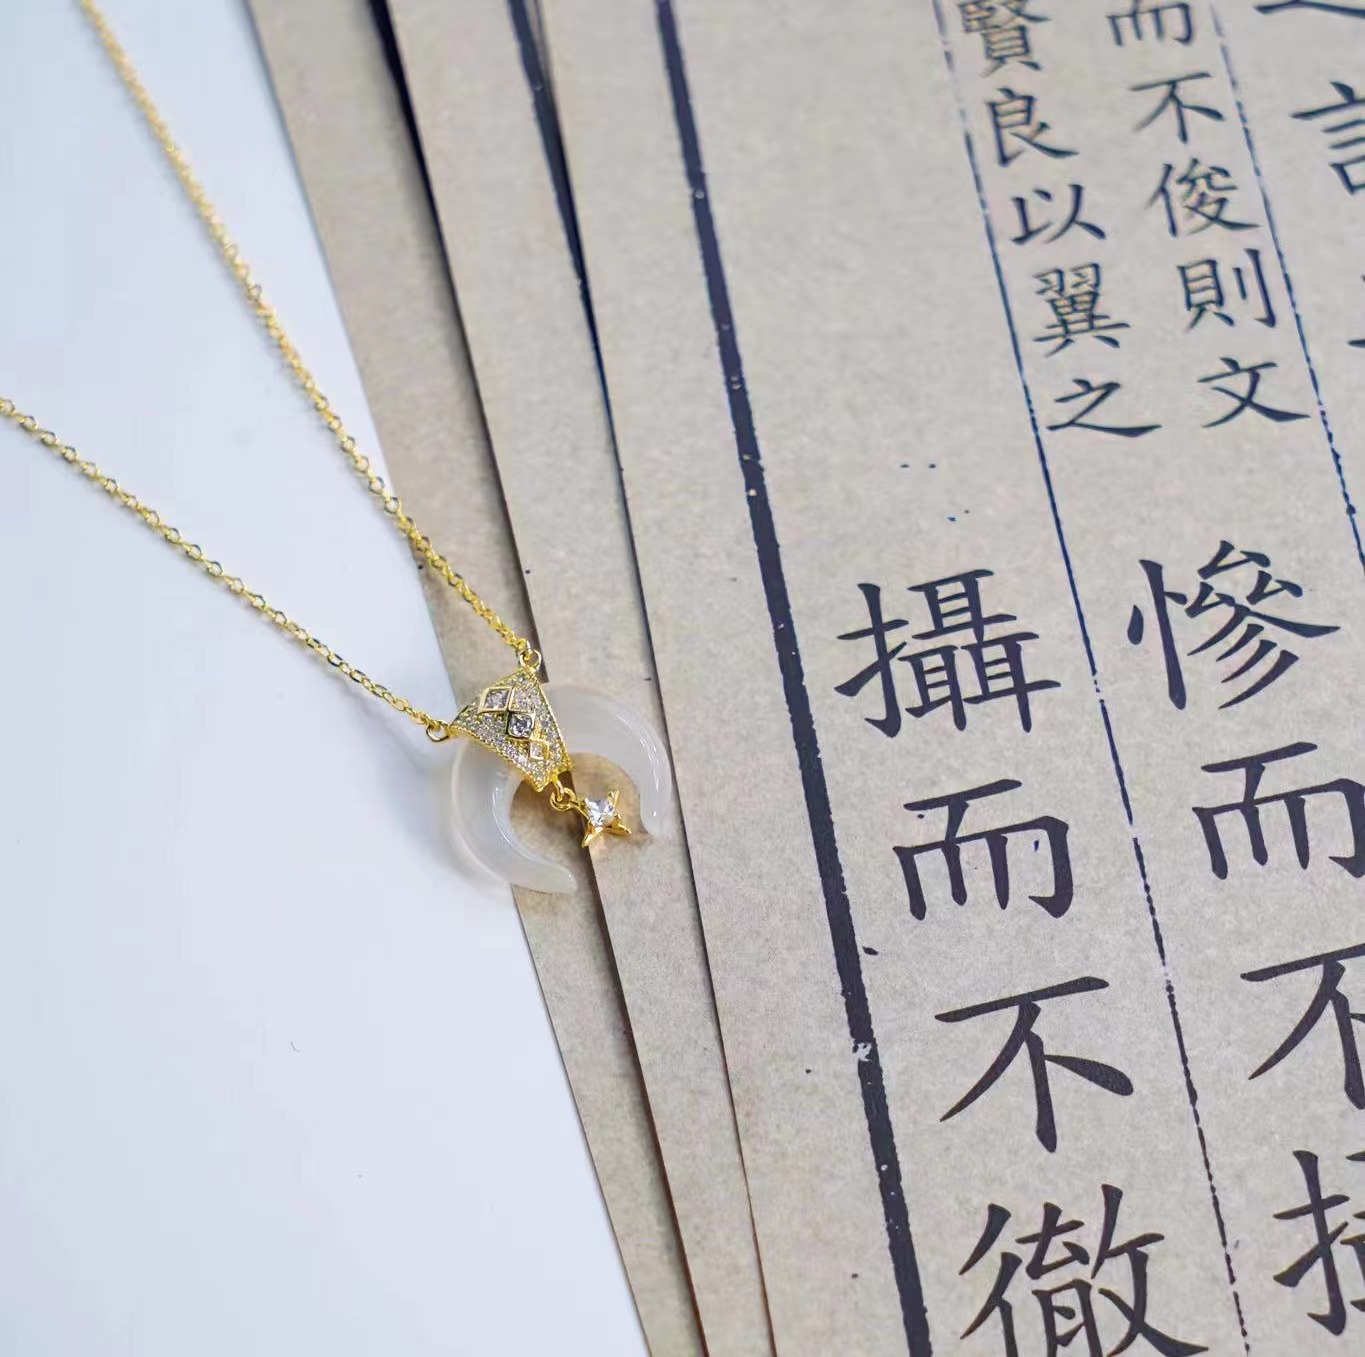 而不俊則文
賢良以翼之
慘而不
攝而不徹